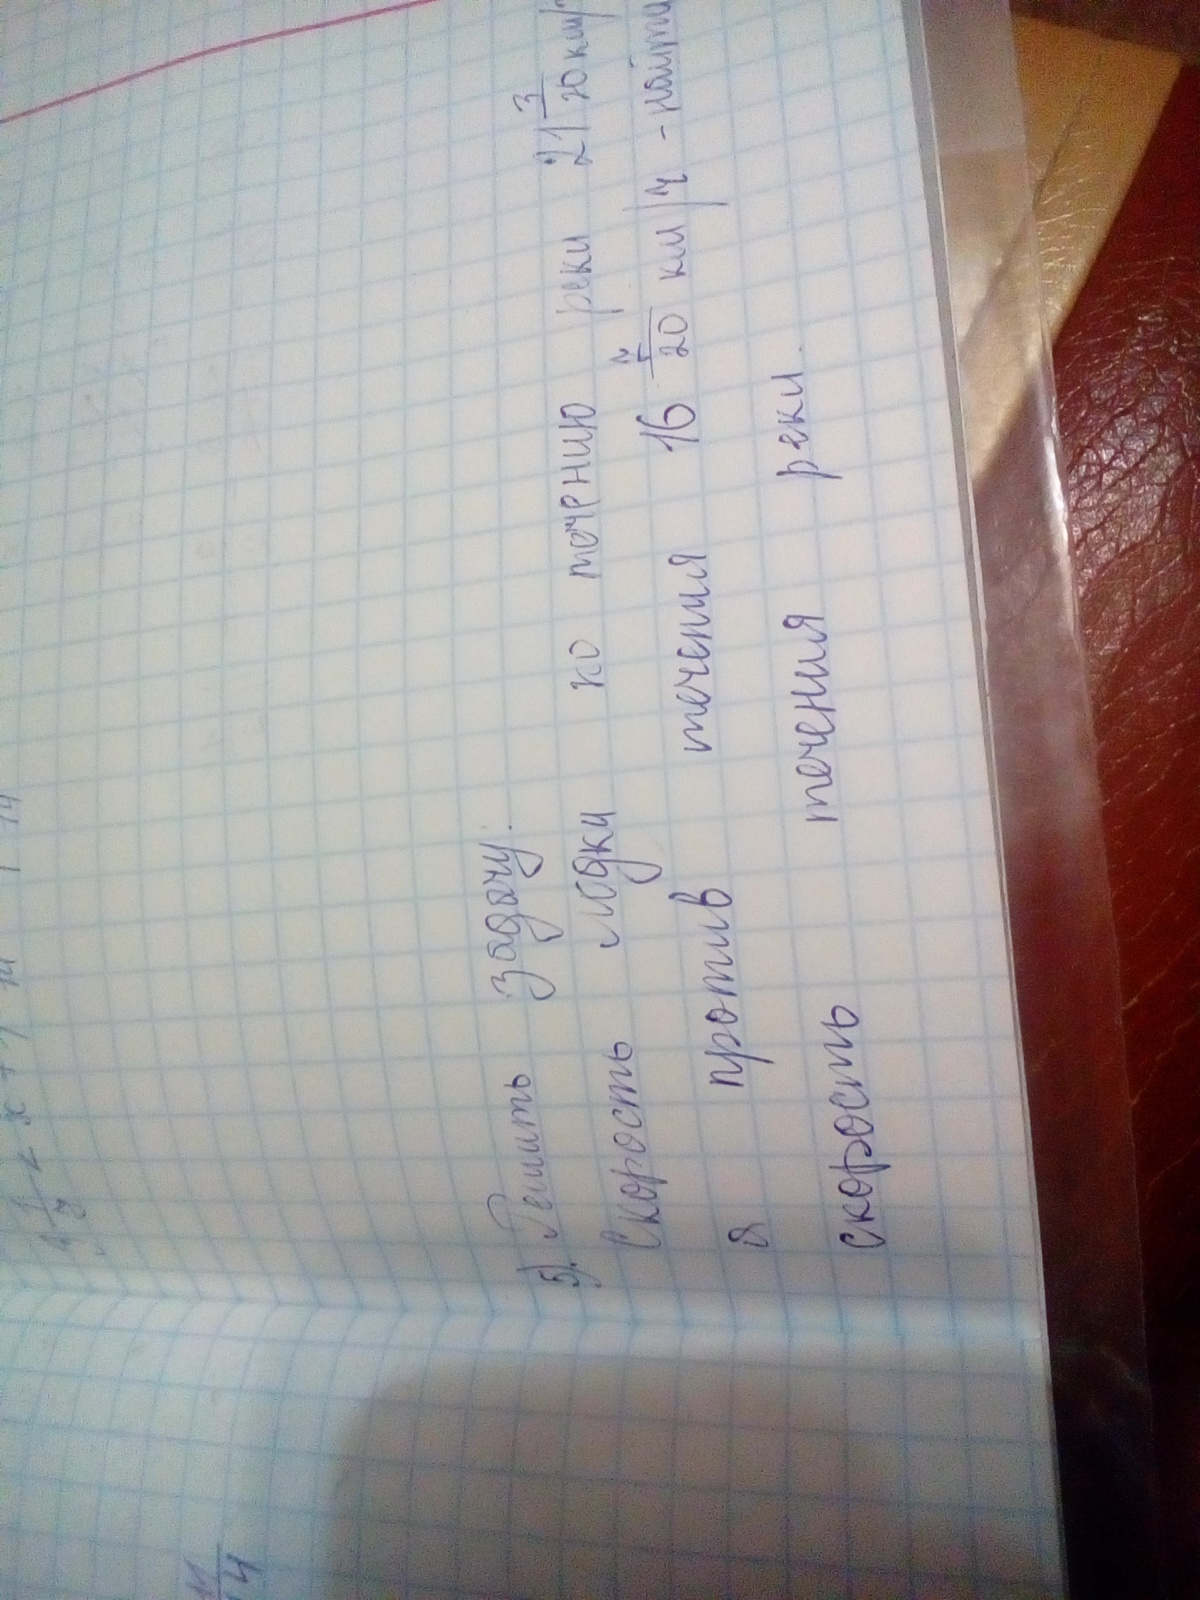 5). Решить задачу.
Скорость лодки по течению реки 21 3/20 км/
а против течения 16 /20 км/ч - найти
скорость течения реки.